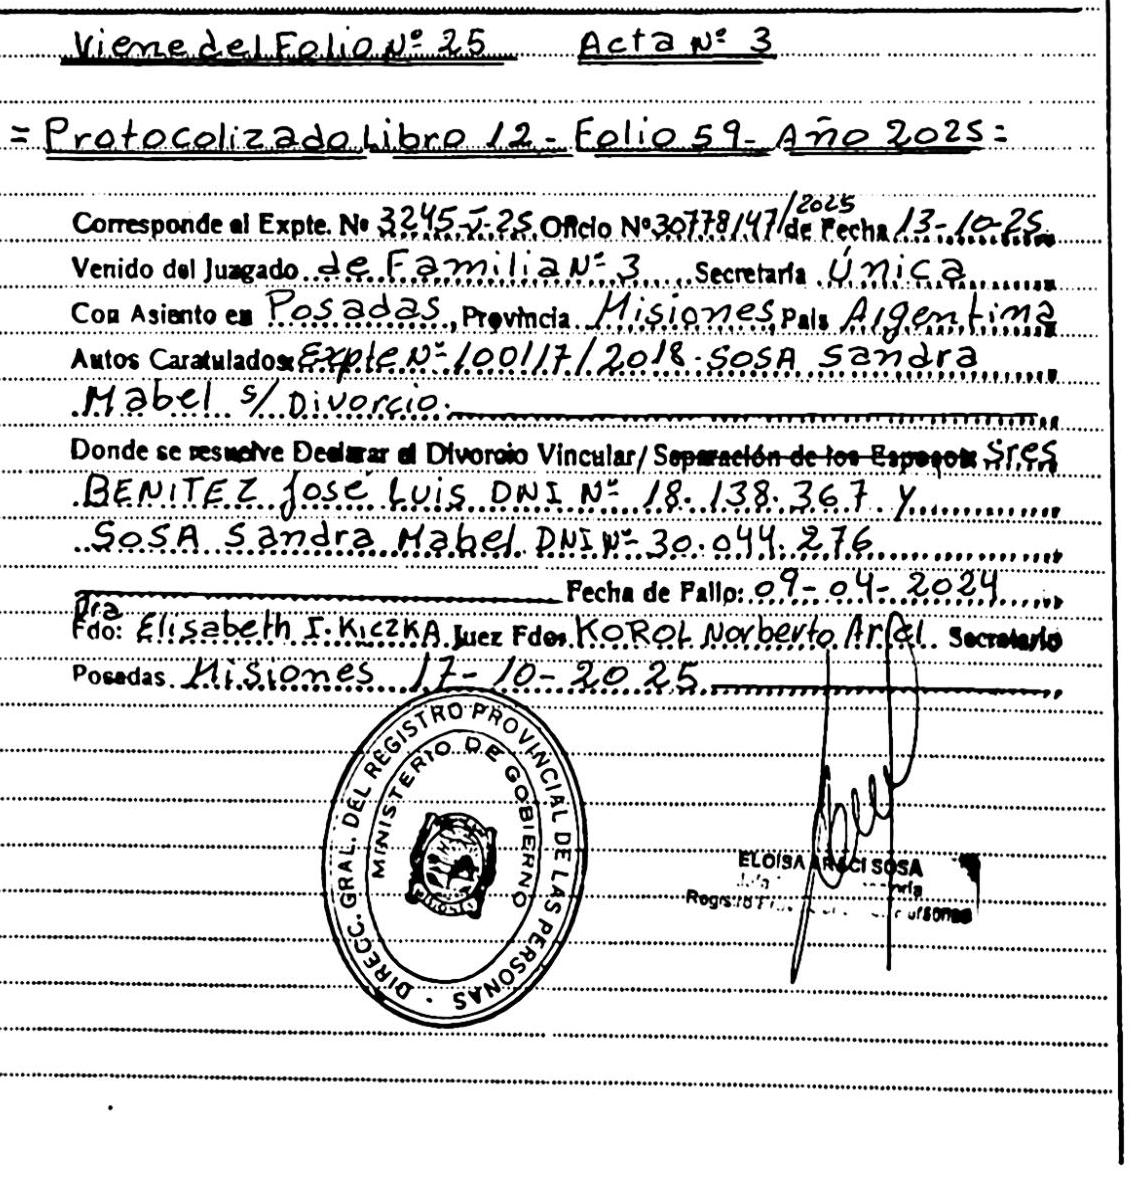 Viene del Folio Nº 25 Acta Nº 3
= Protocolizado Libro 12 - Folio 59 - Año 2025 =
Corresponde al Expte. Nº 3245-V-25 Oficio Nº 30778/47/2025 de Fecha 13-10-25
Venido del Juzgado de Familia Nº 3 Secretaría Única
Con Asiento en Posadas, Provincia Misiones, País Argentina
Autos Caratulados: Expte Nº 100117/2018 - SOSA Sandra
Mabel s/ Divorcio.
Donde se resuelve Declarar el Divorcio Vincular/ Separación de los Esposos: Sres
BENITEZ José Luis DNI Nº 18.138.367 y
SOSA Sandra Mabel DNI Nº 30.044.276
Fecha de Fallo: 09-04-2024
Fdo: Dra Elisabeth I. KICZKA Juez Fdo. KOROL Norberto Ariel Secretario
Posadas. Misiones 17-10-2025
DIRECC. GRAL. DEL REGISTRO PROVINCIAL DE LAS PERSONAS
MINISTERIO DE GOBIERNO
ELOISA ARACI SOSA